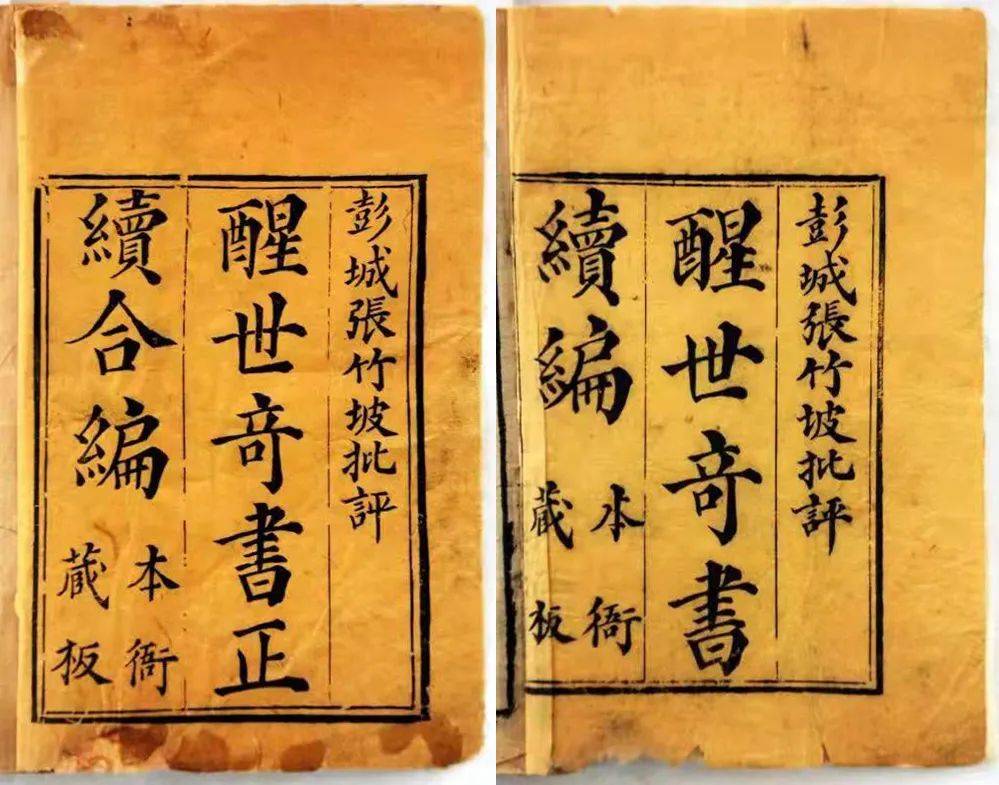 彭城張竹坡批評
醒世竒書正
續合編
本衙
蔵板
彭城張竹坡批評
醒世竒書
續編
本衙
蔵板